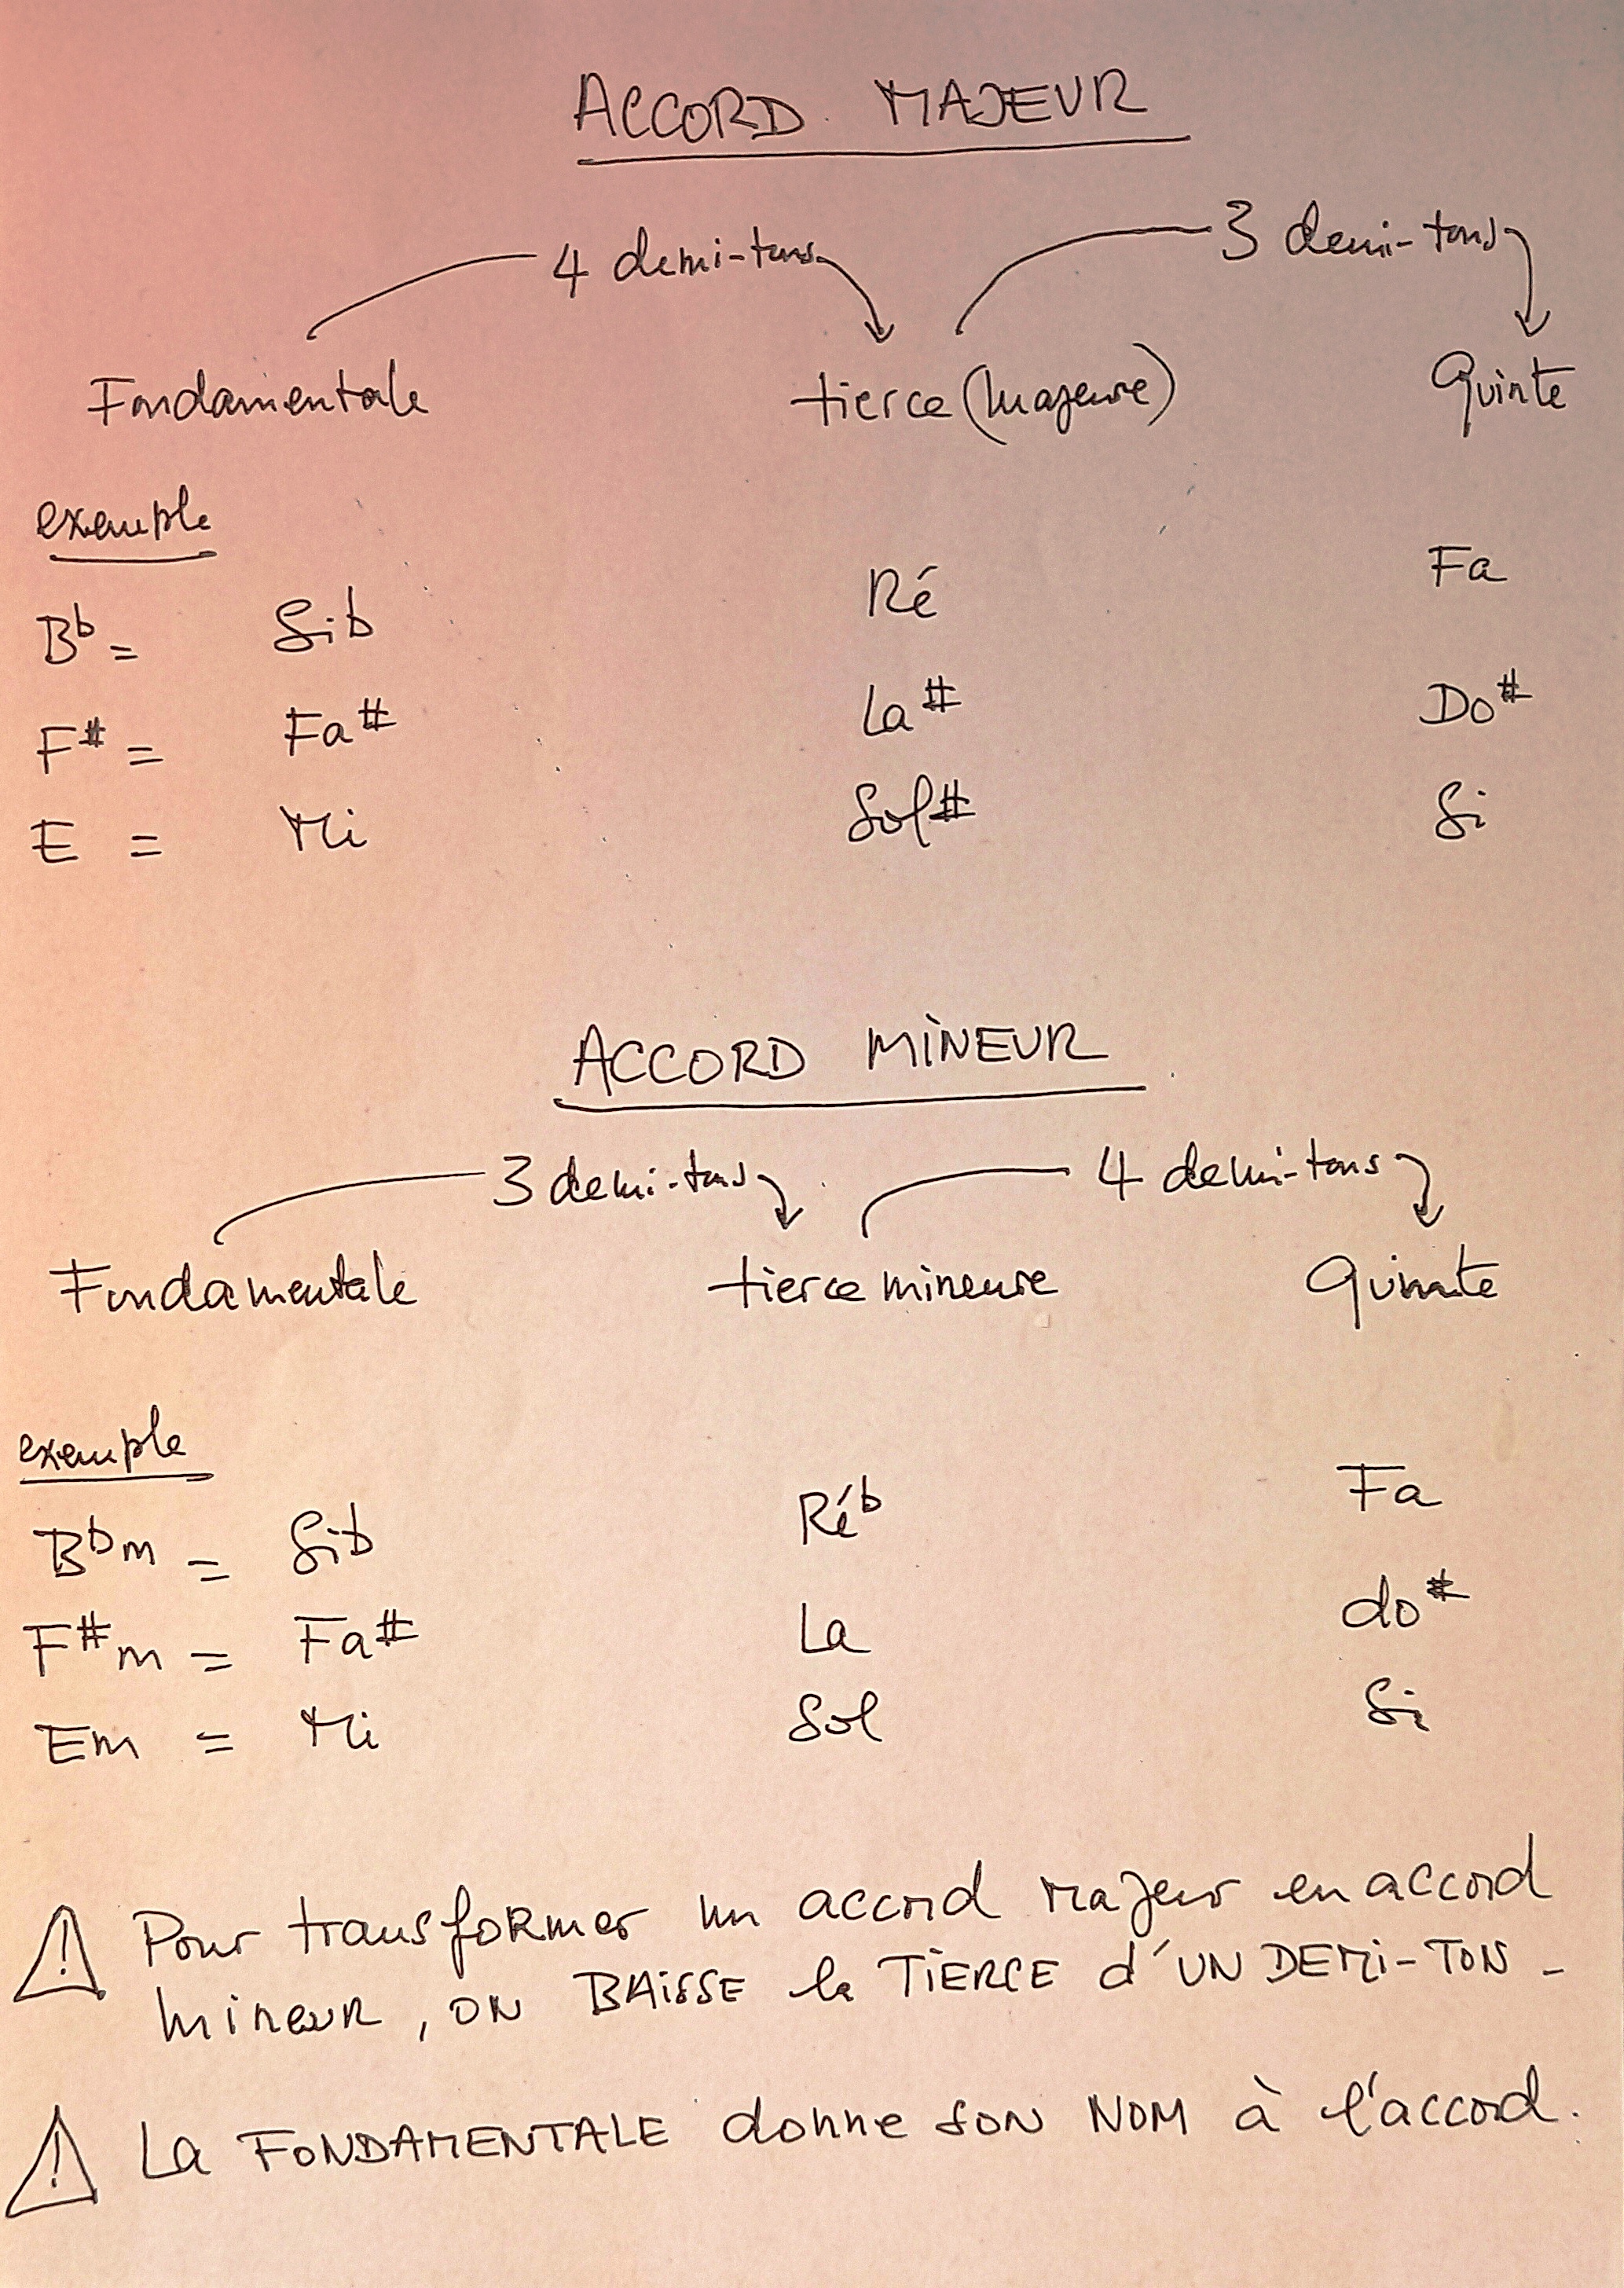 ACCORD MAJEUR
4 demi-tons 3 demi-tons
Fondamentale tierce (majeure) Quinte
exemple
Bb = Sib Ré Fa
F# = Fa# La# Do#
E = Mi Sol# Si
ACCORD MINEUR
3 demi-tons 4 demi-tons
Fondamentale tierce mineure Quinte
exemple
Bbm = Sib Réb Fa
F#m = Fa# La do#
Em = Mi Sol Si
⚠ Pour transformer un accord majeur en accord
mineur, ON BAISSE la TIERCE d'UN DEMI-TON -
⚠ La FONDAMENTALE donne SON NOM à l'accord.